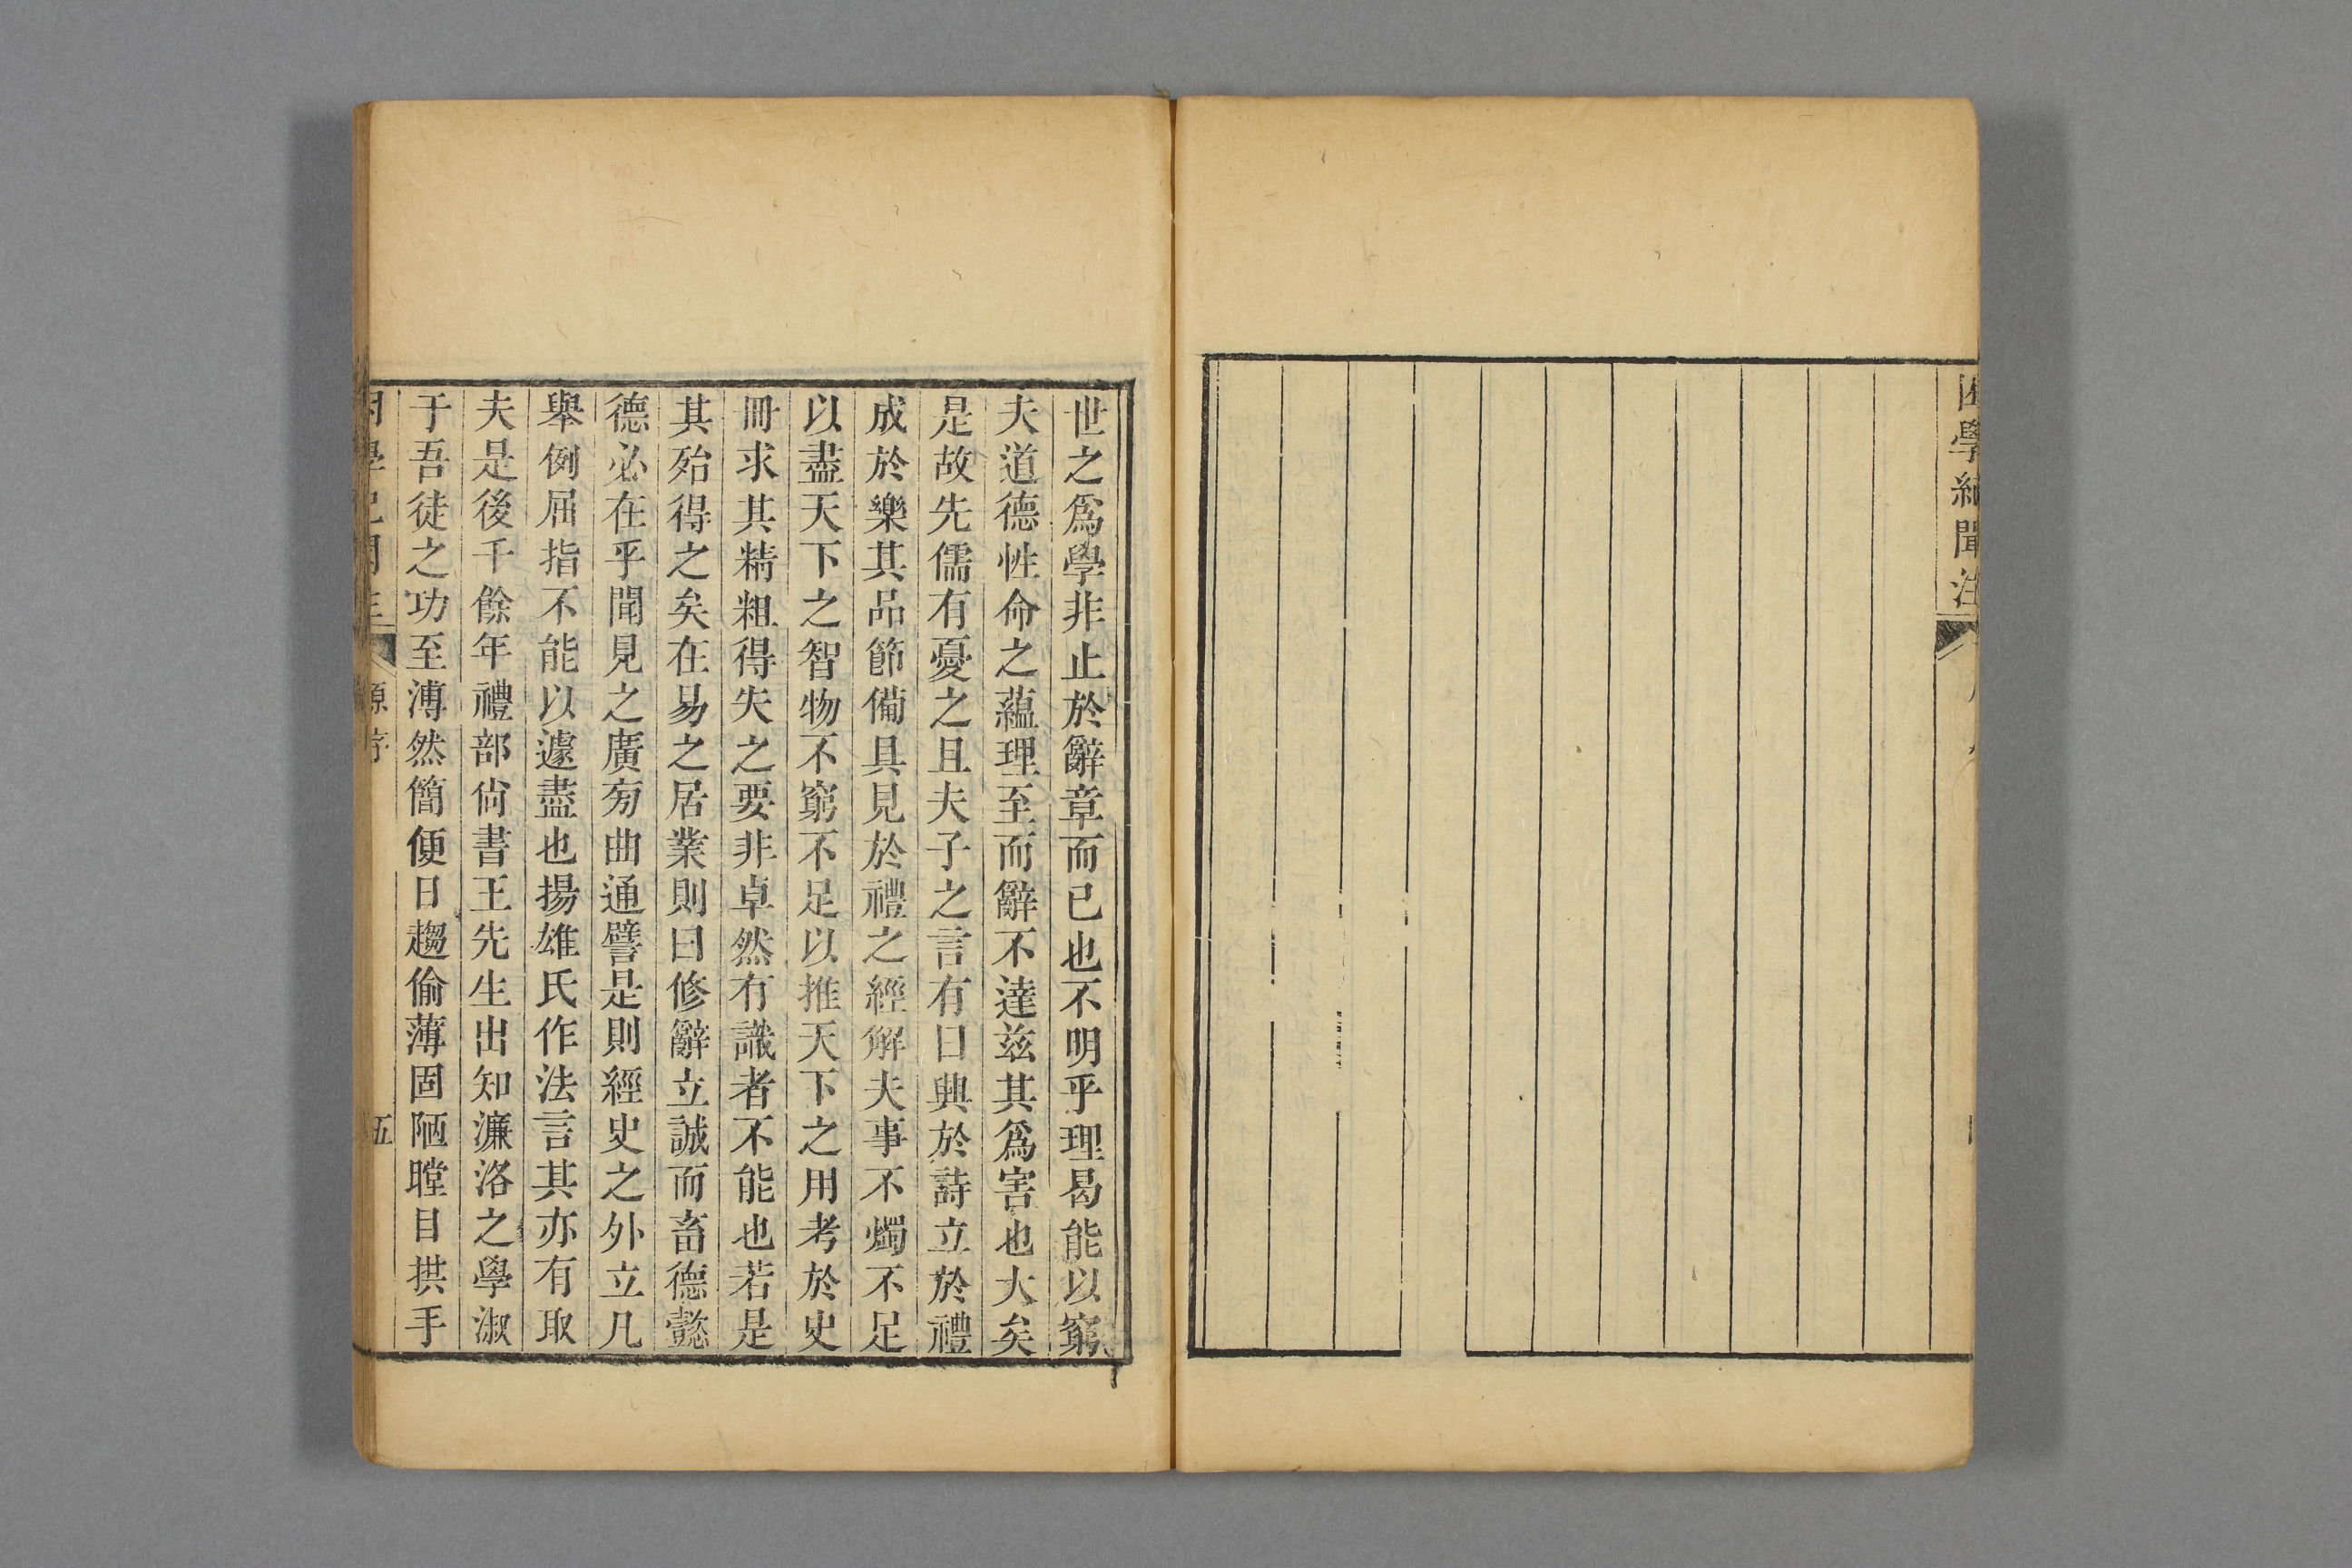 困學紀聞注
世之爲學非止於辭章而已也不明乎理曷能以窮
夫道德性命之蘊理至而辭不達兹其爲害也大矣
是故先儒有憂之且夫子之言有曰興於詩立於禮
成於樂其品節備具見於禮之經解夫事不燭不足
以盡天下之智物不窮不足以推天下之用考於史
冊求其精粗得失之要非卓然有識者不能也若是
其殆得之矣在易之居業則曰修辭立誠而畜德懿
德必在乎聞見之廣㫄曲通譬是則經史之外立凡
舉例屈指不能以遽盡也揚雄氏作法言其亦有取
夫是後千餘年禮部尙書王先生出知濂洛之學淑
于吾徒之功至溥然簡便日趨偷薄固陋瞠目拱手
困學紀聞注
原序
五